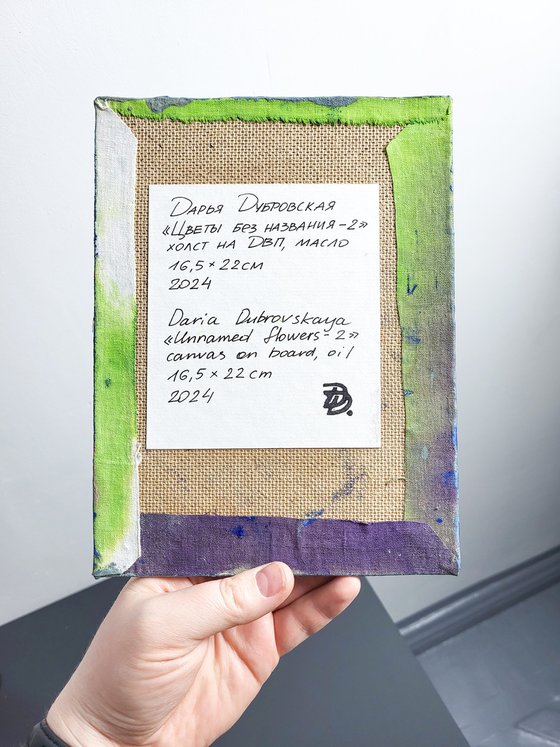 Дарья Дубровская
«Цветы без названия-2»
холст на ДВП, масло
16,5 × 22 см
2024
Daria Dubrovskaya
«Unnamed flowers-2»
canvas on board, oil
16,5 × 22 cm
2024
DD.